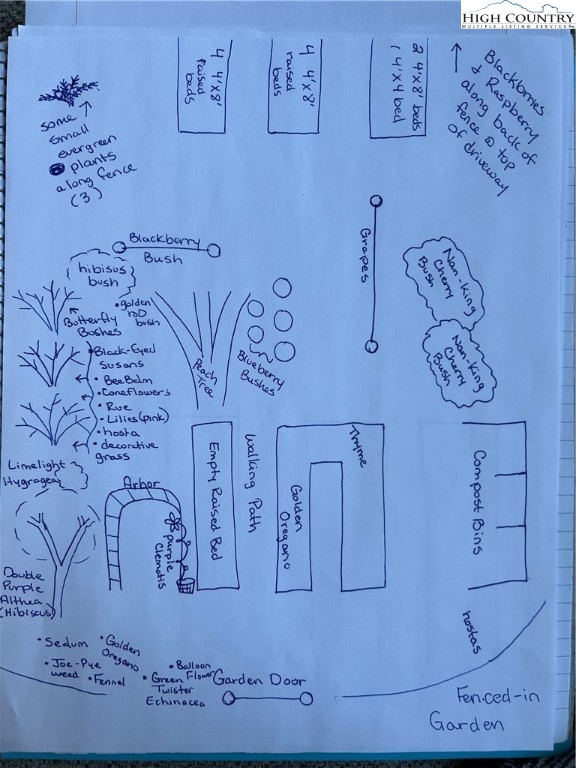 HIGH COUNTRY
MULTIPLE LISTING SERVICE
4 4'x8'
raised
beds
4 4'x8'
raised
beds
2 4'x8' beds
1 4'x4 bed
Blackberries
& Raspberry
along back of
fence to top
of driveway
some
small
evergreen
plants
along fence
(3)
Blackberry
Bush
hibisus
bush
Grapes
Nan-King
Cherry
Bush
Nan-King
Cherry
Bush
• golden
rod
bush
Butterfly
Bushes
Peach
Tree
Blueberry
Bushes
• Black-Eyed
Susans
• BeeBalm
• Coneflowers
• Rue
- Lilies (pink)
• hosta
• decorative
grass
Limelight
Hygragea
Arbor
Purple
Clematis
Empty Raised Bed
Walking Path
Thyme
Golden
Oregano
Compost Bins
Double
Purple
Althea
(Hibiscus)
hostas
• Sedum
• Golden
Oregano
• Joe-Pye
weed
• Fennel
• Balloon
Flower
• Green
Twister
Echinacea
Garden Door
Fenced-in
Garden